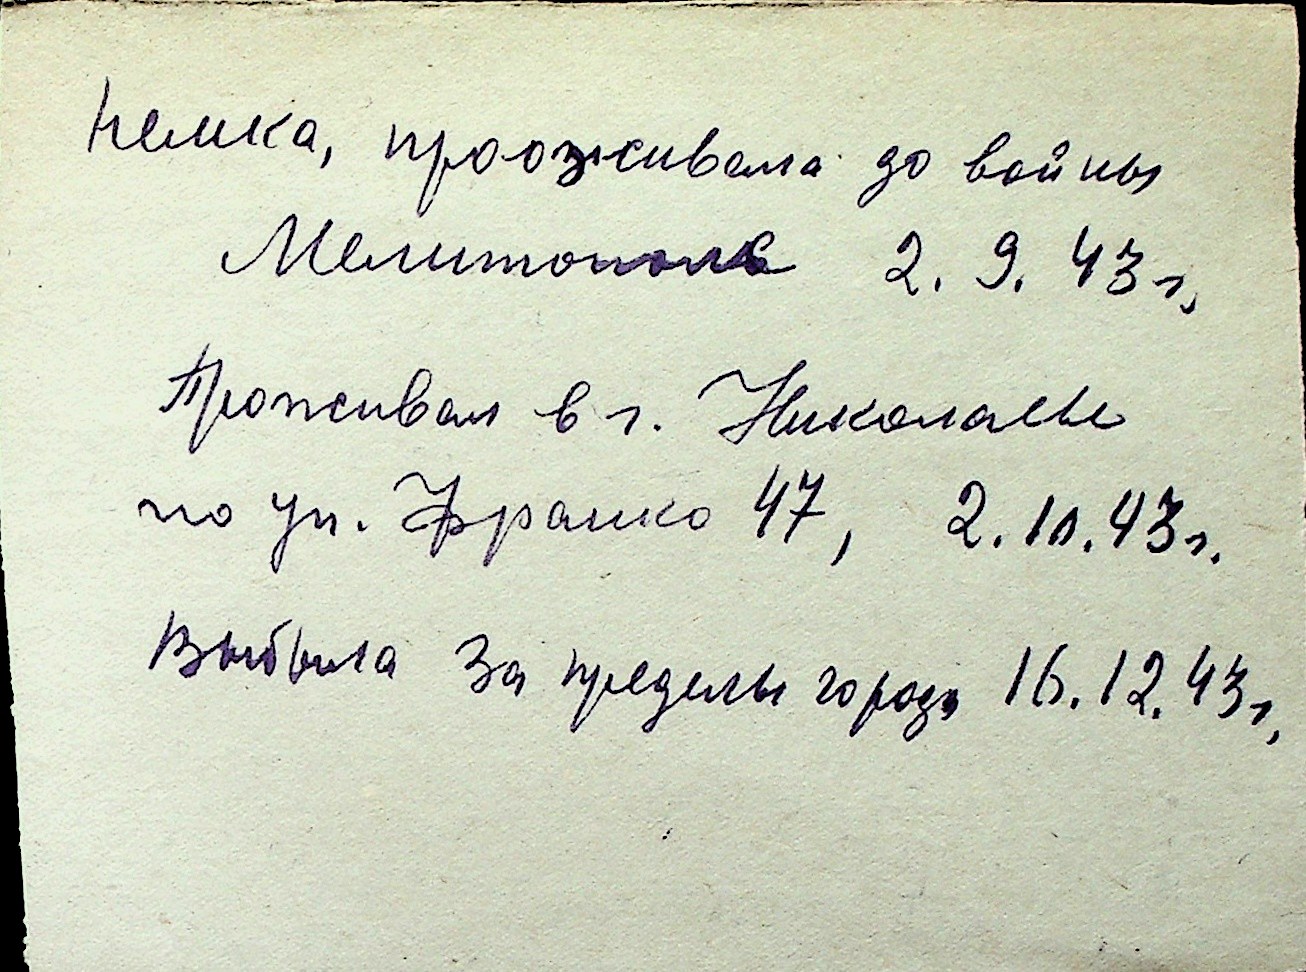 немка, прооживала до войны
Мелитополь 2.9.43г,
Проживал в г. Николаеве
по ул. Франко 47, 2.10.43г.
Выбыла за пределы города 16.12.43г,